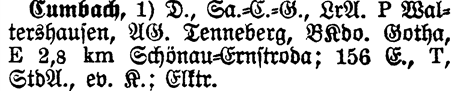 Cumbach, 1) D., Sa.-C.-G., LrA. P Wal-
tershausen, AG. Tenneberg, BKdo. Gotha,
E 2,8 km Schönau-Ernstroda; 156 E., T,
StdA., ev. K.; Elktr.